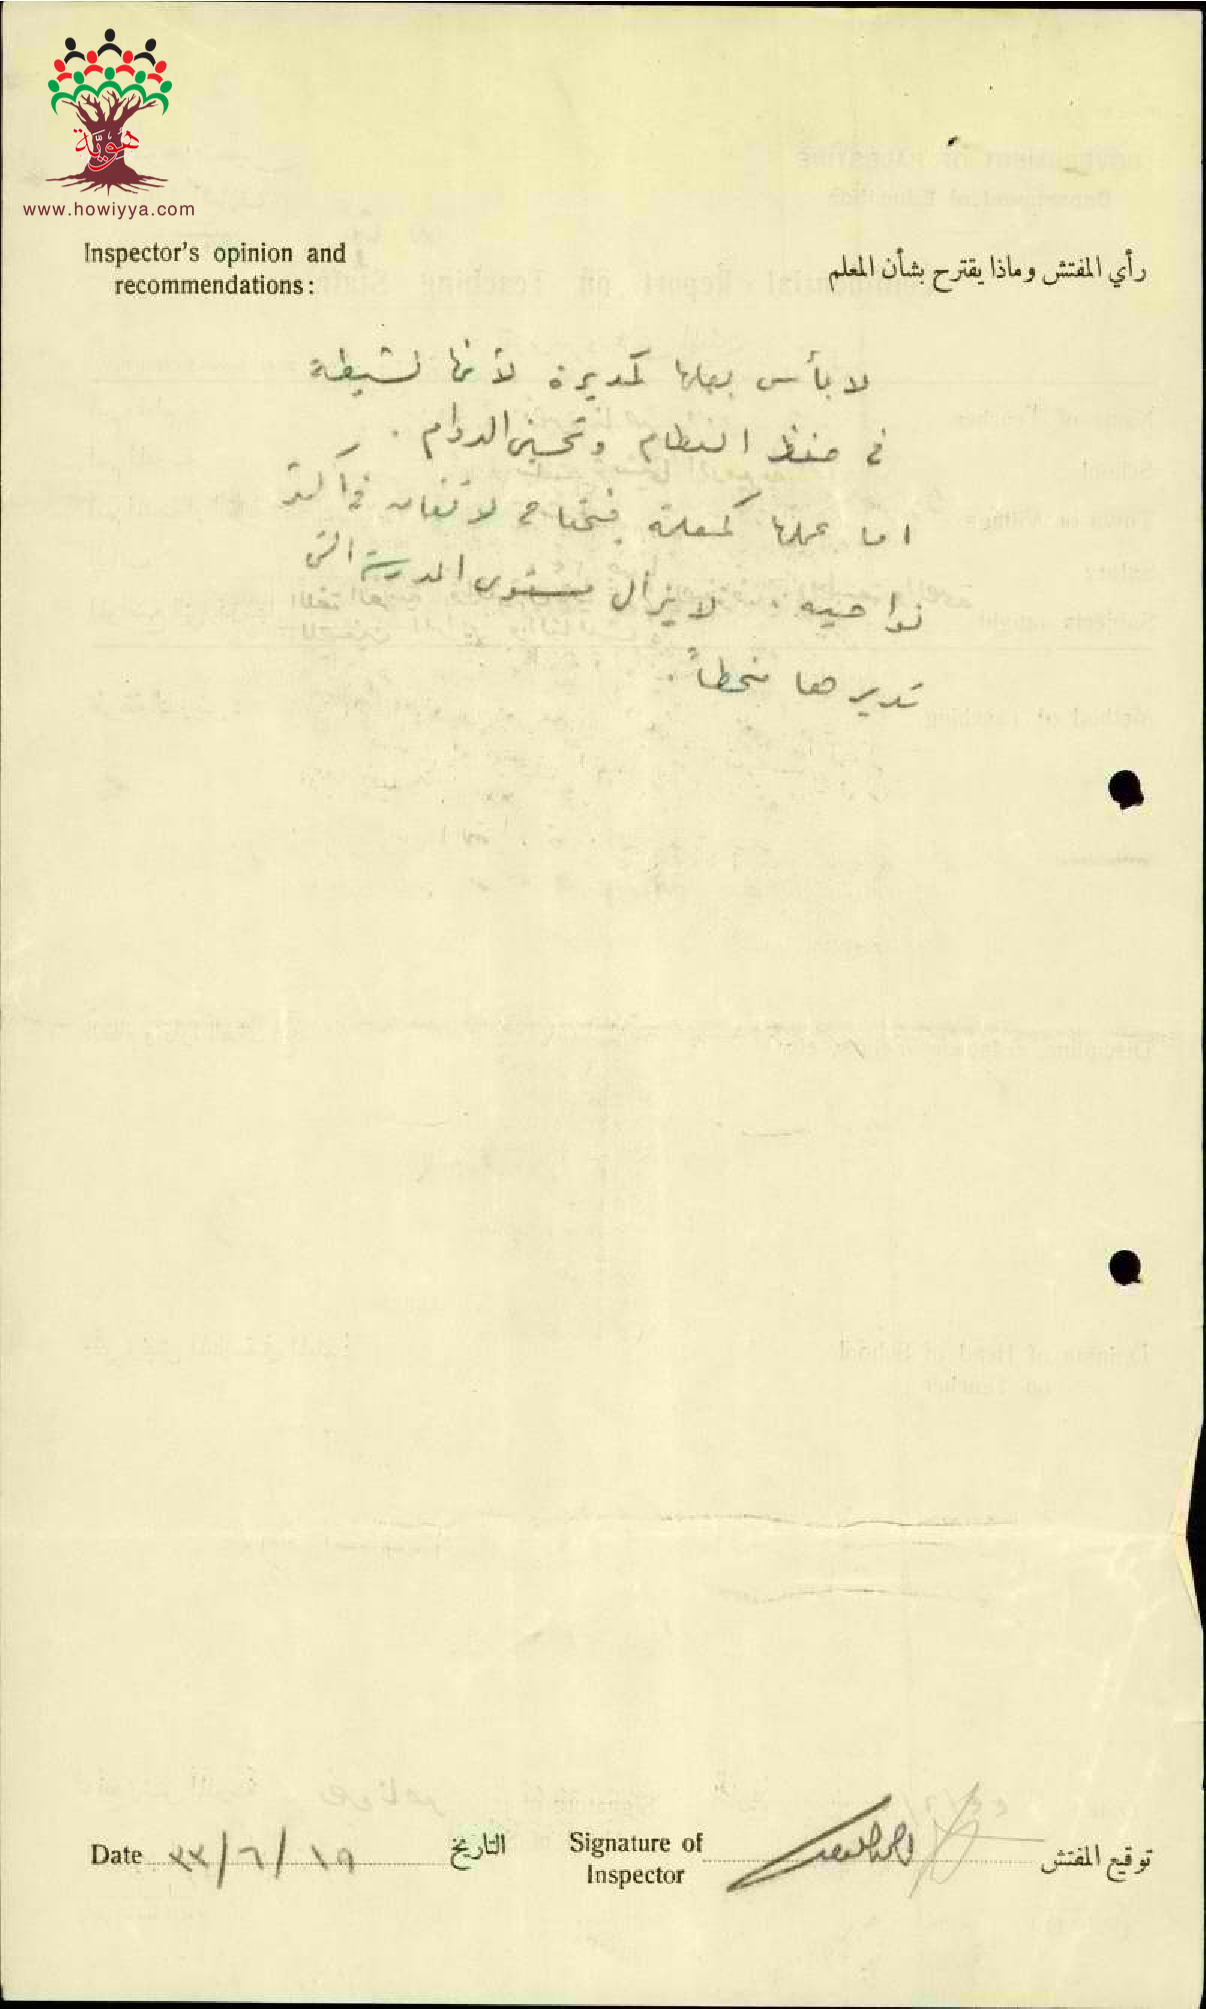 هَوِيَّة
www.howiyya.com
Inspector's opinion and
recommendations:
رأي المفتش وماذا يقترح بشأن المعلم
لا بأس بعملها كمديرة لأنها نشيطة
في حفظ النظام وتحسين الدوام .
اما عملها كمعلمة فيحتاج لاتقان في أكثر
نواحيه . لا يزال مستوى المدرسة التي
تديرها منحطاً .
Date ١٩/٦/٣٣ التاريخ
Signature of
Inspector
توقيع المفتش